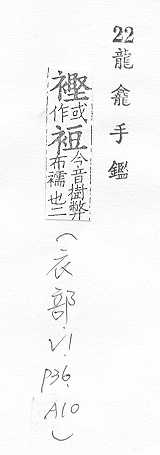 22 龍龕手鑑
䙛或作裋今音樹弊布襦也二
(衣部.V1.P36.A10)